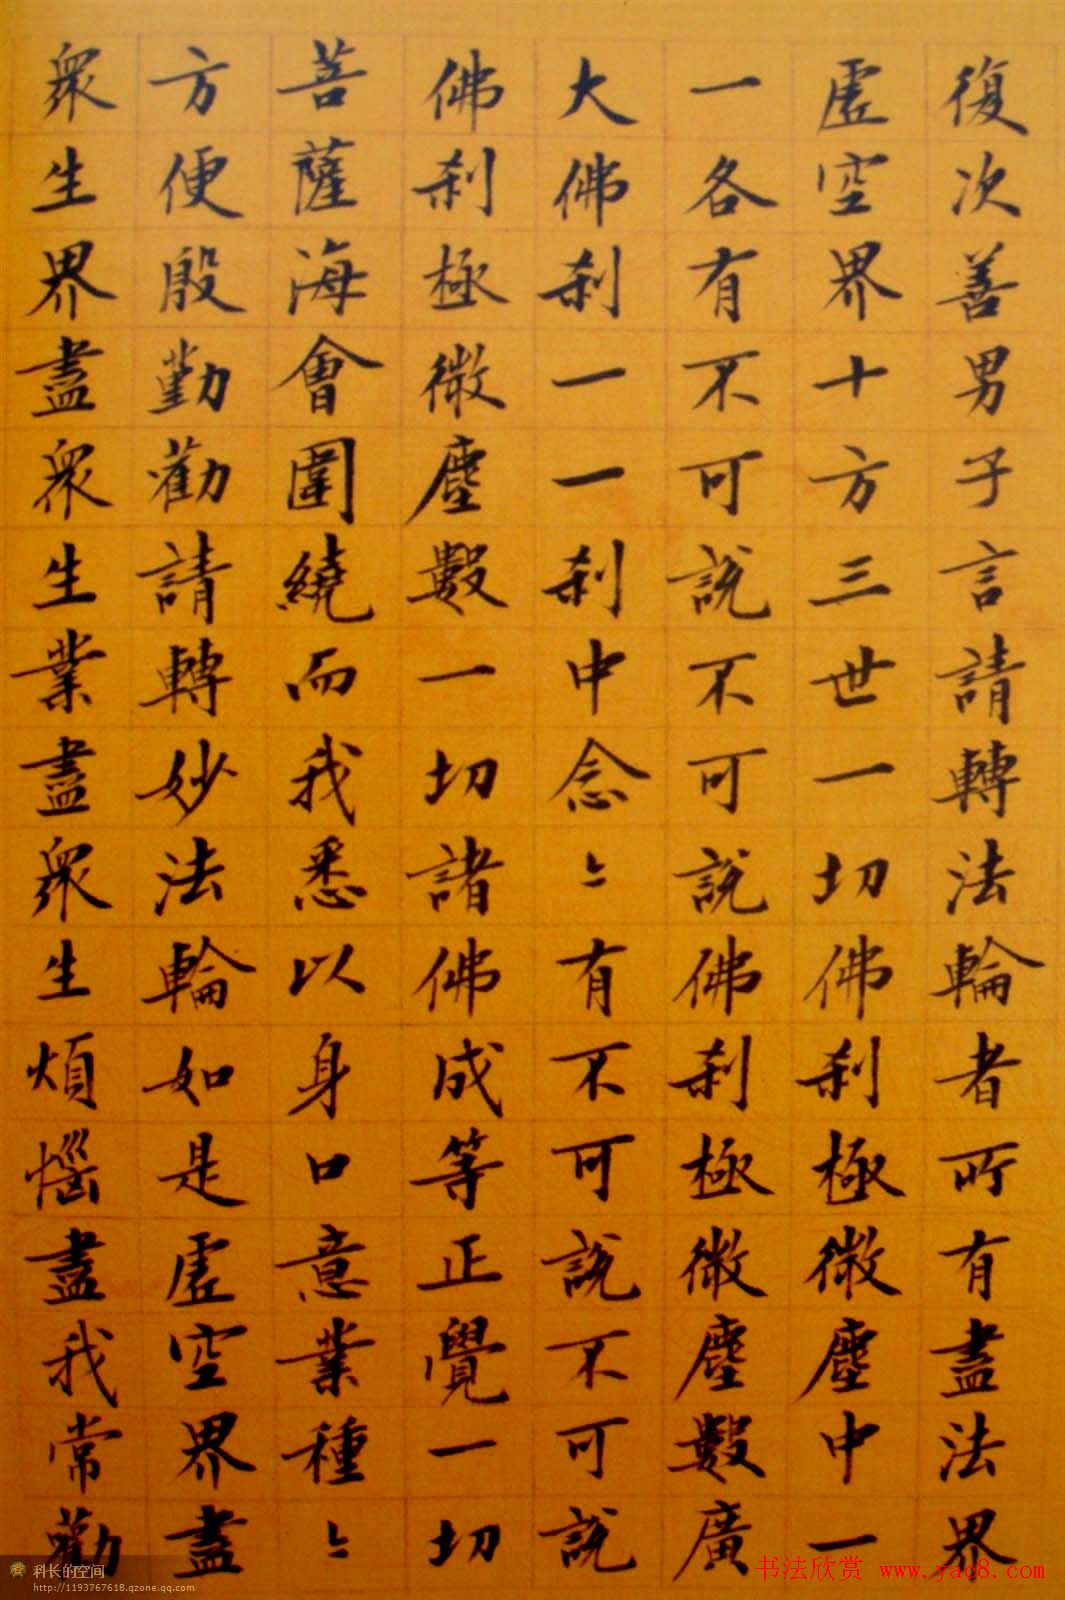 復次善男子言請轉法輪者所有盡法界
虛空界十方三世一切佛刹極微塵中一
一各有不可說不可說佛刹極微塵數廣
大佛刹一一刹中念〻有不可說不可說
佛刹極微塵數一切諸佛成等正覺一切
菩薩海會圍繞而我悉以身口意業種〻
方便殷勤勸請轉妙法輪如是虛空界盡
衆生界盡衆生業盡衆生煩惱盡我常勸
科长的空间
http://1193767618.qzone.qq.com
书法欣赏 www.yac8.com